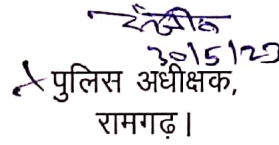 30/5/23
पुलिस अधीक्षक,
रामगढ़।